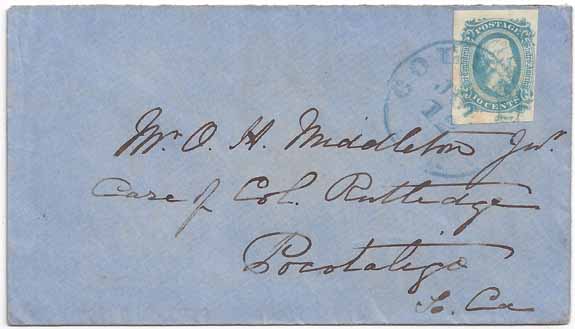 POSTAGE
10 CENTS
CO
Mr O. H. Middleton Jnr.
Care of Col. Rutledge
Pocotaligo
So. Ca